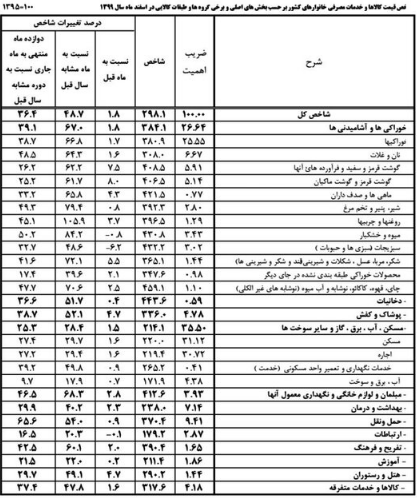 شاخص قیمت کالاها و خدمات مصرفی خانوارهای کشور بر حسب بخش های اصلی و برخی گروه ها و طبقات کالایی در اسفند ماه سال ۱۳۹۹
۱۳۹۵=۱۰۰
شرح ضریب اهمیت شاخص درصد تغییرات شاخص
نسبت به ماه قبل نسبت به ماه مشابه سال قبل دوازده ماه منتهی به ماه جاری نسبت به دوره مشابه سال قبل
شاخص کل ۱۰۰.۰۰ ۲۹۸.۱ ۱.۸ ۴۸.۷ ۳۶.۴
خوراکی ها و آشامیدنی ها ۲۶.۶۴ ۳۸۴.۱ ۱.۸ ۶۷.۰ ۳۹.۱
خوراکیها ۲۵.۵۵ ۳۸۰.۹ ۱.۷ ۶۶.۸ ۳۸.۷
نان و غلات ۶.۶۷ ۳۰۸.۰ ۱.۶ ۶۴.۳ ۴۸.۵
گوشت قرمز و سفید و فرآورده های آنها ۵.۹۱ ۴۰۸.۵ ۷.۵ ۶۲.۲ ۲۶.۲
گوشت قرمز و گوشت ماکیان ۵.۱۴ ۴۰۶.۵ ۸.۰ ۶۱.۷ ۲۵.۲
ماهی ها و صدف داران ۰.۷۷ ۴۲۱.۵ ۴.۳ ۶۵.۸ ۳۳.۲
شیر، پنیر و تخم مرغ ۲.۸۰ ۳۹۲.۳ ۰.۸ ۷۹.۴ ۴۹.۳
روغنها و چربیها ۱.۲۹ ۳۹۶.۵ ۳.۷ ۱۰۵.۹ ۴۵.۱
میوه و خشکبار ۳.۴۳ ۴۳۰.۸ -۰.۸ ۸۴.۲ ۵۰.۲
سبزیجات (سبزی ها و حبوبات) ۳.۰۲ ۴۳۲.۲ -۶.۲ ۴۸.۶ ۳۲.۷
شکر، مربا، عسل، شکلات و شیرینی(قند و شکر و شیرینی ها) ۱.۴۵ ۳۶۵.۱ ۱.۱ ۵۵.۱ ۴۱.۶
محصولات خوراکی طبقه بندی نشده در جای دیگر ۰.۹۸ ۳۴۷.۶ ۲.۱ ۳۹.۶ ۱۷.۴
چای، قهوه، کاکائو، نوشابه و آب میوه (نوشابه های غیر الکلی) ۱.۱۰ ۴۵۹.۱ ۲.۵ ۷۰.۶ ۴۷.۷
- دخانیات ۰.۵۹ ۴۴۳.۶ ۰.۴ ۵۱.۷ ۳۶.۶
- پوشاک و کفش ۴.۷۸ ۳۳۶.۰ ۴.۷ ۵۲.۱ ۳۸.۷
- مسکن، آب، برق، گاز و سایر سوخت ها ۳۵.۵۰ ۲۱۴.۱ ۱.۵ ۲۸.۴ ۲۵.۳
مسکن ۳۱.۱۲ ۲۲۰.۰ ۱.۶ ۲۹.۷ ۲۷.۴
اجاره ۳۰.۷۲ ۲۱۹.۴ ۱.۶ ۲۹.۴ ۲۷.۲
خدمات نگهداری و تعمیر واحد مسکونی (خدمت) ۰.۴۱ ۲۶۵.۲ ۰.۹ ۴۹.۸ ۳۹.۲
آب، برق و سوخت ۴.۳۸ ۱۷۱.۹ ۰.۷ ۱۷.۹ ۹.۷
- مبلمان و لوازم خانگی و نگهداری معمول آنها ۳.۹۳ ۴۱۲.۶ ۲.۸ ۶۸.۳ ۴۶.۵
- بهداشت و درمان ۷.۱۴ ۲۳۸.۰ ۲.۳ ۴۰.۲ ۲۹.۹
- حمل ونقل ۹.۴۱ ۳۷۰.۴ ۰.۹ ۵۴.۰ ۶۵.۶
- ارتباطات ۲.۸۷ ۱۷۹.۲ -۰.۱ ۲۰.۳ ۱۶.۵
- تفریح و فرهنگ ۱.۶۵ ۳۹۰.۴ ۲.۰ ۶۰.۱ ۴۲.۵
- آموزش ۱.۸۶ ۲۱۱.۴ ۰.۲ ۲۲.۰ ۲۱.۵
- هتل و رستوران ۱.۴۴ ۲۹۰.۲ ۴.۷ ۴۹.۱ ۲۹.۷
- کالاها و خدمات متفرقه ۴.۱۸ ۳۱۷.۶ ۱.۶ ۴۷.۸ ۳۷.۴